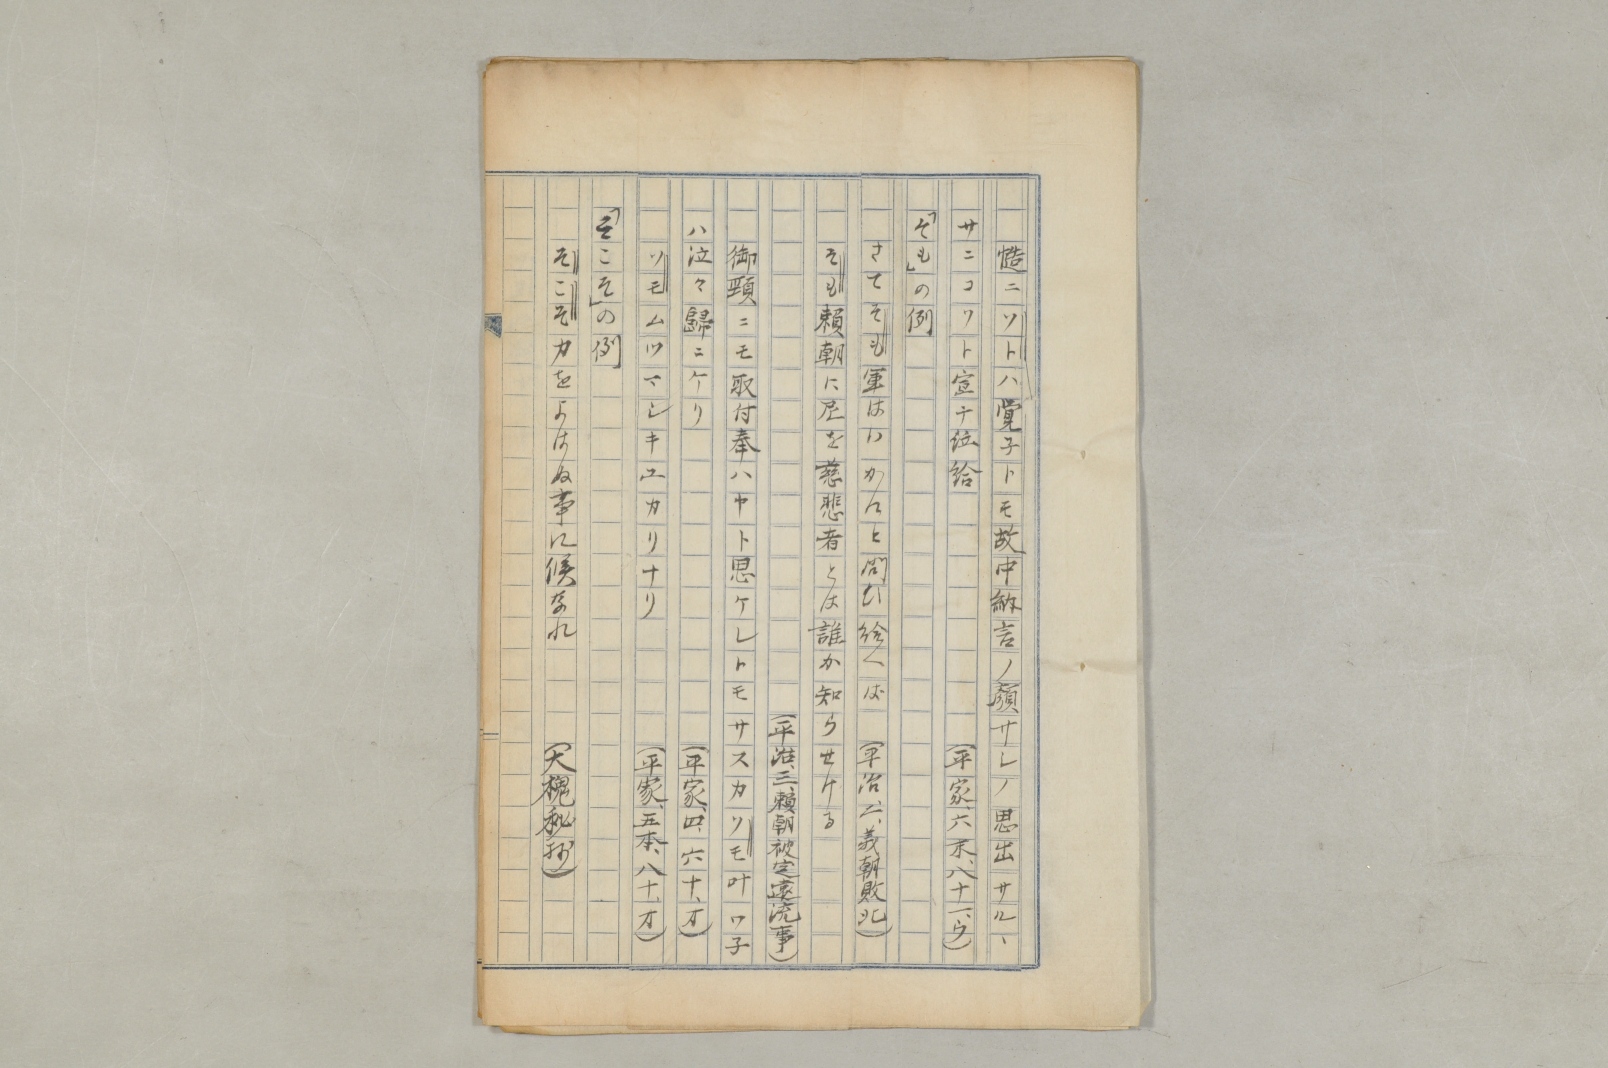 慥ニソトハ覚子トモ故中納言ノ顔サシノ思出サルヽ
サニコソト宣テ泣給　（平家、六末、八十一、ウ）
「そも」の例
さてそも軍はいかにと問ひ給へば　（平治二、義朝敗北）
そも頼朝に尼を慈悲者とは誰か知らせける
（平治、三、頼朝被定遠流事）
御頸ニモ取付奉ハヤト思ケレトモサスカソモ叶ワ子
ハ泣々歸ニケリ　（平家、四、六十、オ）
ソモムツマシキユカリナリ　（平家、五本、八十、オ）
「そこそ」の例
そこそ力をよはぬ事に候なれ　（大槐秘抄）